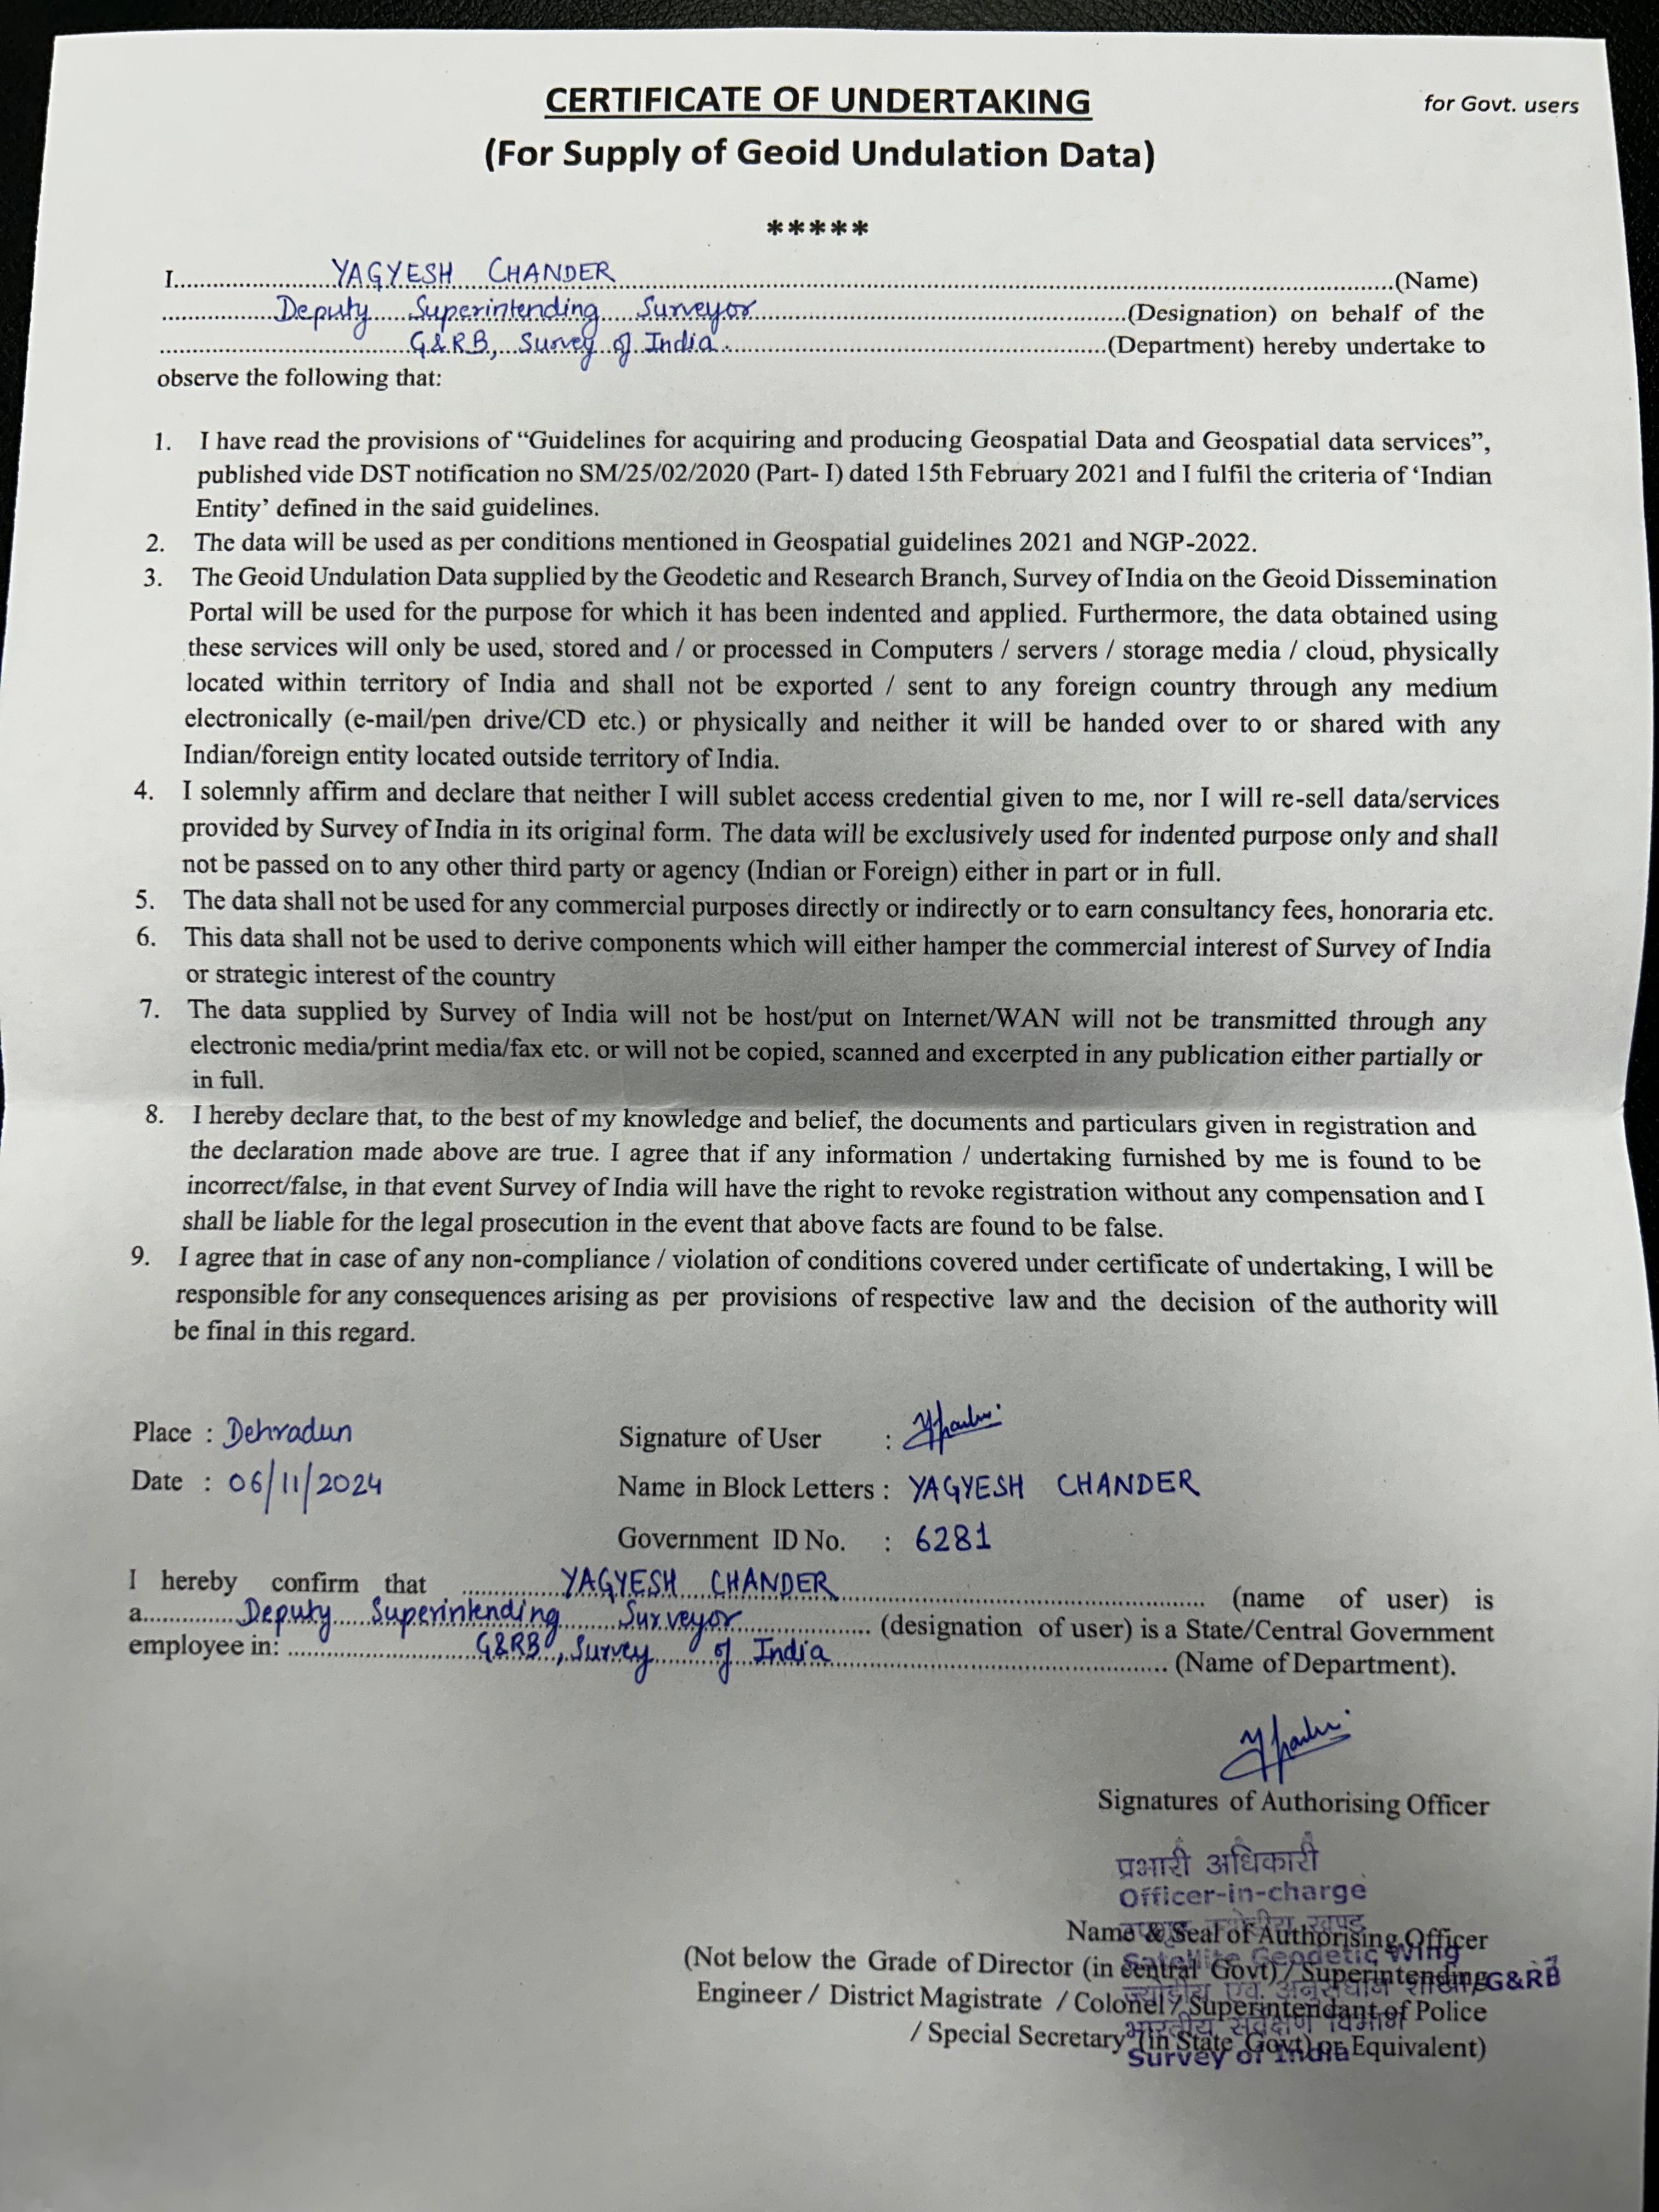 CERTIFICATE OF UNDERTAKING
for Govt. users
(For Supply of Geoid Undulation Data)
*****
I.......YAGYESH CHANDER.......(Name)
.......Deputy Superintending Surveyor.......(Designation) on behalf of the
.......G&RB, Survey of India.......(Department) hereby undertake to
observe the following that:
1. I have read the provisions of “Guidelines for acquiring and producing Geospatial Data and Geospatial data services”,
published vide DST notification no SM/25/02/2020 (Part- I) dated 15th February 2021 and I fulfil the criteria of ‘Indian
Entity’ defined in the said guidelines.
2. The data will be used as per conditions mentioned in Geospatial guidelines 2021 and NGP-2022.
3. The Geoid Undulation Data supplied by the Geodetic and Research Branch, Survey of India on the Geoid Dissemination
Portal will be used for the purpose for which it has been indented and applied. Furthermore, the data obtained using
these services will only be used, stored and / or processed in Computers / servers / storage media / cloud, physically
located within territory of India and shall not be exported / sent to any foreign country through any medium
electronically (e-mail/pen drive/CD etc.) or physically and neither it will be handed over to or shared with any
Indian/foreign entity located outside territory of India.
4. I solemnly affirm and declare that neither I will sublet access credential given to me, nor I will re-sell data/services
provided by Survey of India in its original form. The data will be exclusively used for indented purpose only and shall
not be passed on to any other third party or agency (Indian or Foreign) either in part or in full.
5. The data shall not be used for any commercial purposes directly or indirectly or to earn consultancy fees, honoraria etc.
6. This data shall not be used to derive components which will either hamper the commercial interest of Survey of India
or strategic interest of the country
7. The data supplied by Survey of India will not be host/put on Internet/WAN will not be transmitted through any
electronic media/print media/fax etc. or will not be copied, scanned and excerpted in any publication either partially or
in full.
8. I hereby declare that, to the best of my knowledge and belief, the documents and particulars given in registration and
the declaration made above are true. I agree that if any information / undertaking furnished by me is found to be
incorrect/false, in that event Survey of India will have the right to revoke registration without any compensation and I
shall be liable for the legal prosecution in the event that above facts are found to be false.
9. I agree that in case of any non-compliance / violation of conditions covered under certificate of undertaking, I will be
responsible for any consequences arising as per provisions of respective law and the decision of the authority will
be final in this regard.
Place : Dehradun
Signature of User :
Date : 06/11/2024
Name in Block Letters : YAGYESH CHANDER
Government ID No. : 6281
I hereby confirm that .......YAGYESH CHANDER....... (name of user) is
a.......Deputy Superintending Surveyor....... (designation of user) is a State/Central Government
employee in: .......G&RB, Survey of India....... (Name of Department).
Signatures of Authorising Officer
प्रभारी अधिकारी
Officer-in-charge
Name & Seal of Authorising Officer
Satellite Geodetic Wing
(Not below the Grade of Director (in central Govt) / Superintending
ज्योडीय एवं अनुसंधान शाखा/G&RB
Engineer / District Magistrate / Colonel / Superintendant of Police
भारतीय सर्वेक्षण विभाग
/ Special Secretary (in State Govt) or Equivalent)
Survey of India